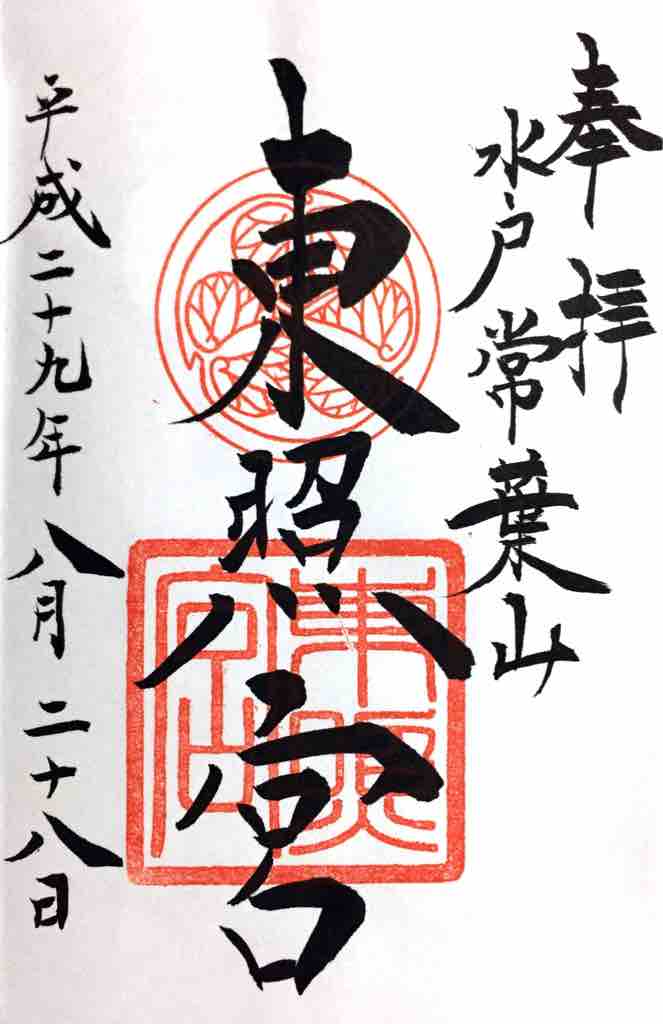 奉拝
水戸常葉山
東照宮
平成二十九年八月二十八日